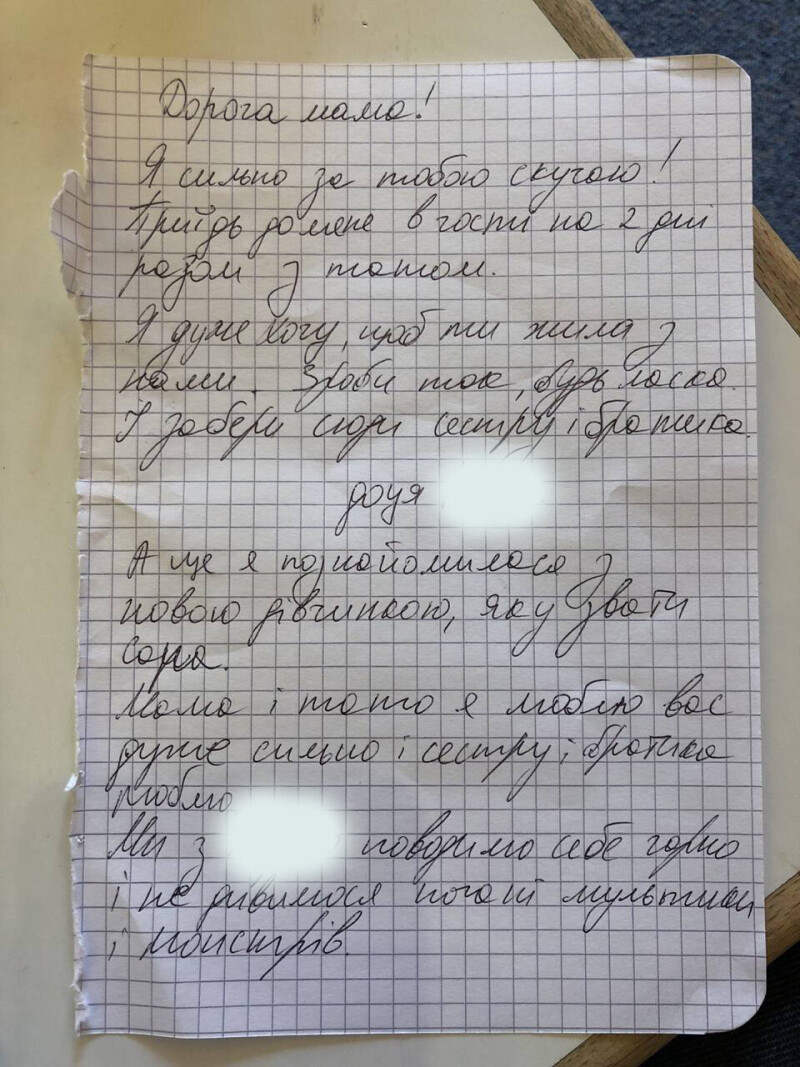 Дорога мамо!
Я сильно за тобою скучаю!
Приїдь до мене в гості на 2 дні
разом з татом.
Я дуже хочу, щоб ти жила з
нами. Зроби так, будь ласка.
І забери сюди сестру і братика.
доця
А ще я познайомилася з
новою дівчинкою, яку звати
Сара.
Мама і тато я люблю вас
дуже сильно і сестру і братика
люблю
Ми з поводимо себе гарно
і не дивимося погані мультики
і монстрів.